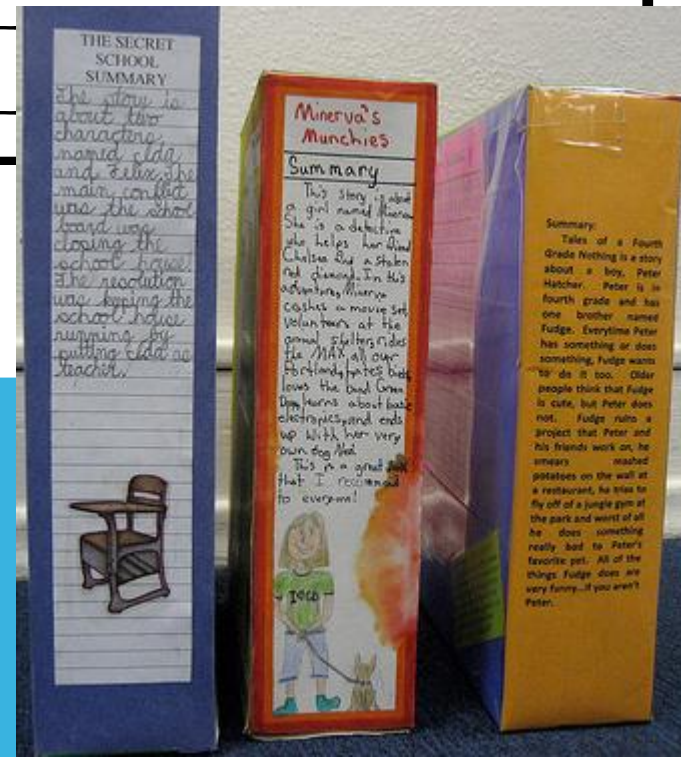 THE SECRET
SCHOOL
SUMMARY
The story is
about two
characters
named Ida
and Felix. The
main conflict
was the school
board was
closing the
school house.
The resolution
was keeping the
school house
running by
putting Ida as
teacher.
Minerva's
Munchies
Summary
This story is about
a girl named Minerva
She is a detective
who helps her friend
Chelsea find a stolen
red diamond. In this
adventure, Minerva
cashes a movie set,
volunteers at the
animal shelter, rides
the MAX all over
Portland, hates
loves the band Green
Day, learns about basic
electronics, and ends
up with her very
own dog
This is a great
that I recommend
to everyone!
Summary:
Tales of a Fourth
Grade Nothing is a story
about a boy, Peter
Hatcher. Peter is in
fourth grade and has
one brother named
Fudge. Everytime Peter
has something or does
something, Fudge wants
to do it too. Older
people think that Fudge
is cute, but Peter does
not. Fudge ruins a
project that Peter and
his friends work on, he
smears mashed
potatoes on the wall at
a restaurant, he tries to
fly off of a jungle gym at
the park and worst of all
he does something
really bad to Peter's
favorite pet. All of the
things Fudge does are
very funny...if you aren't
Peter.